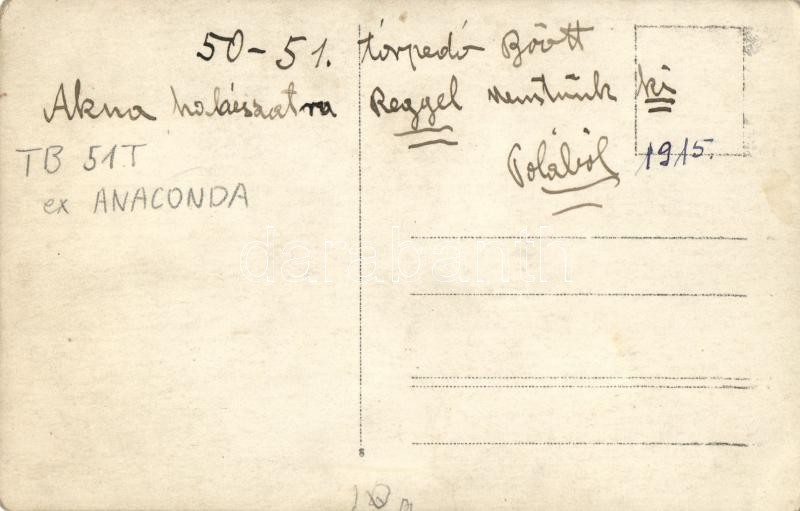 50-51. torpedó Boott
Akna halászatra Reggel mentünk ki
Polából 1915.
TB 51T
ex ANACONDA
darabanth